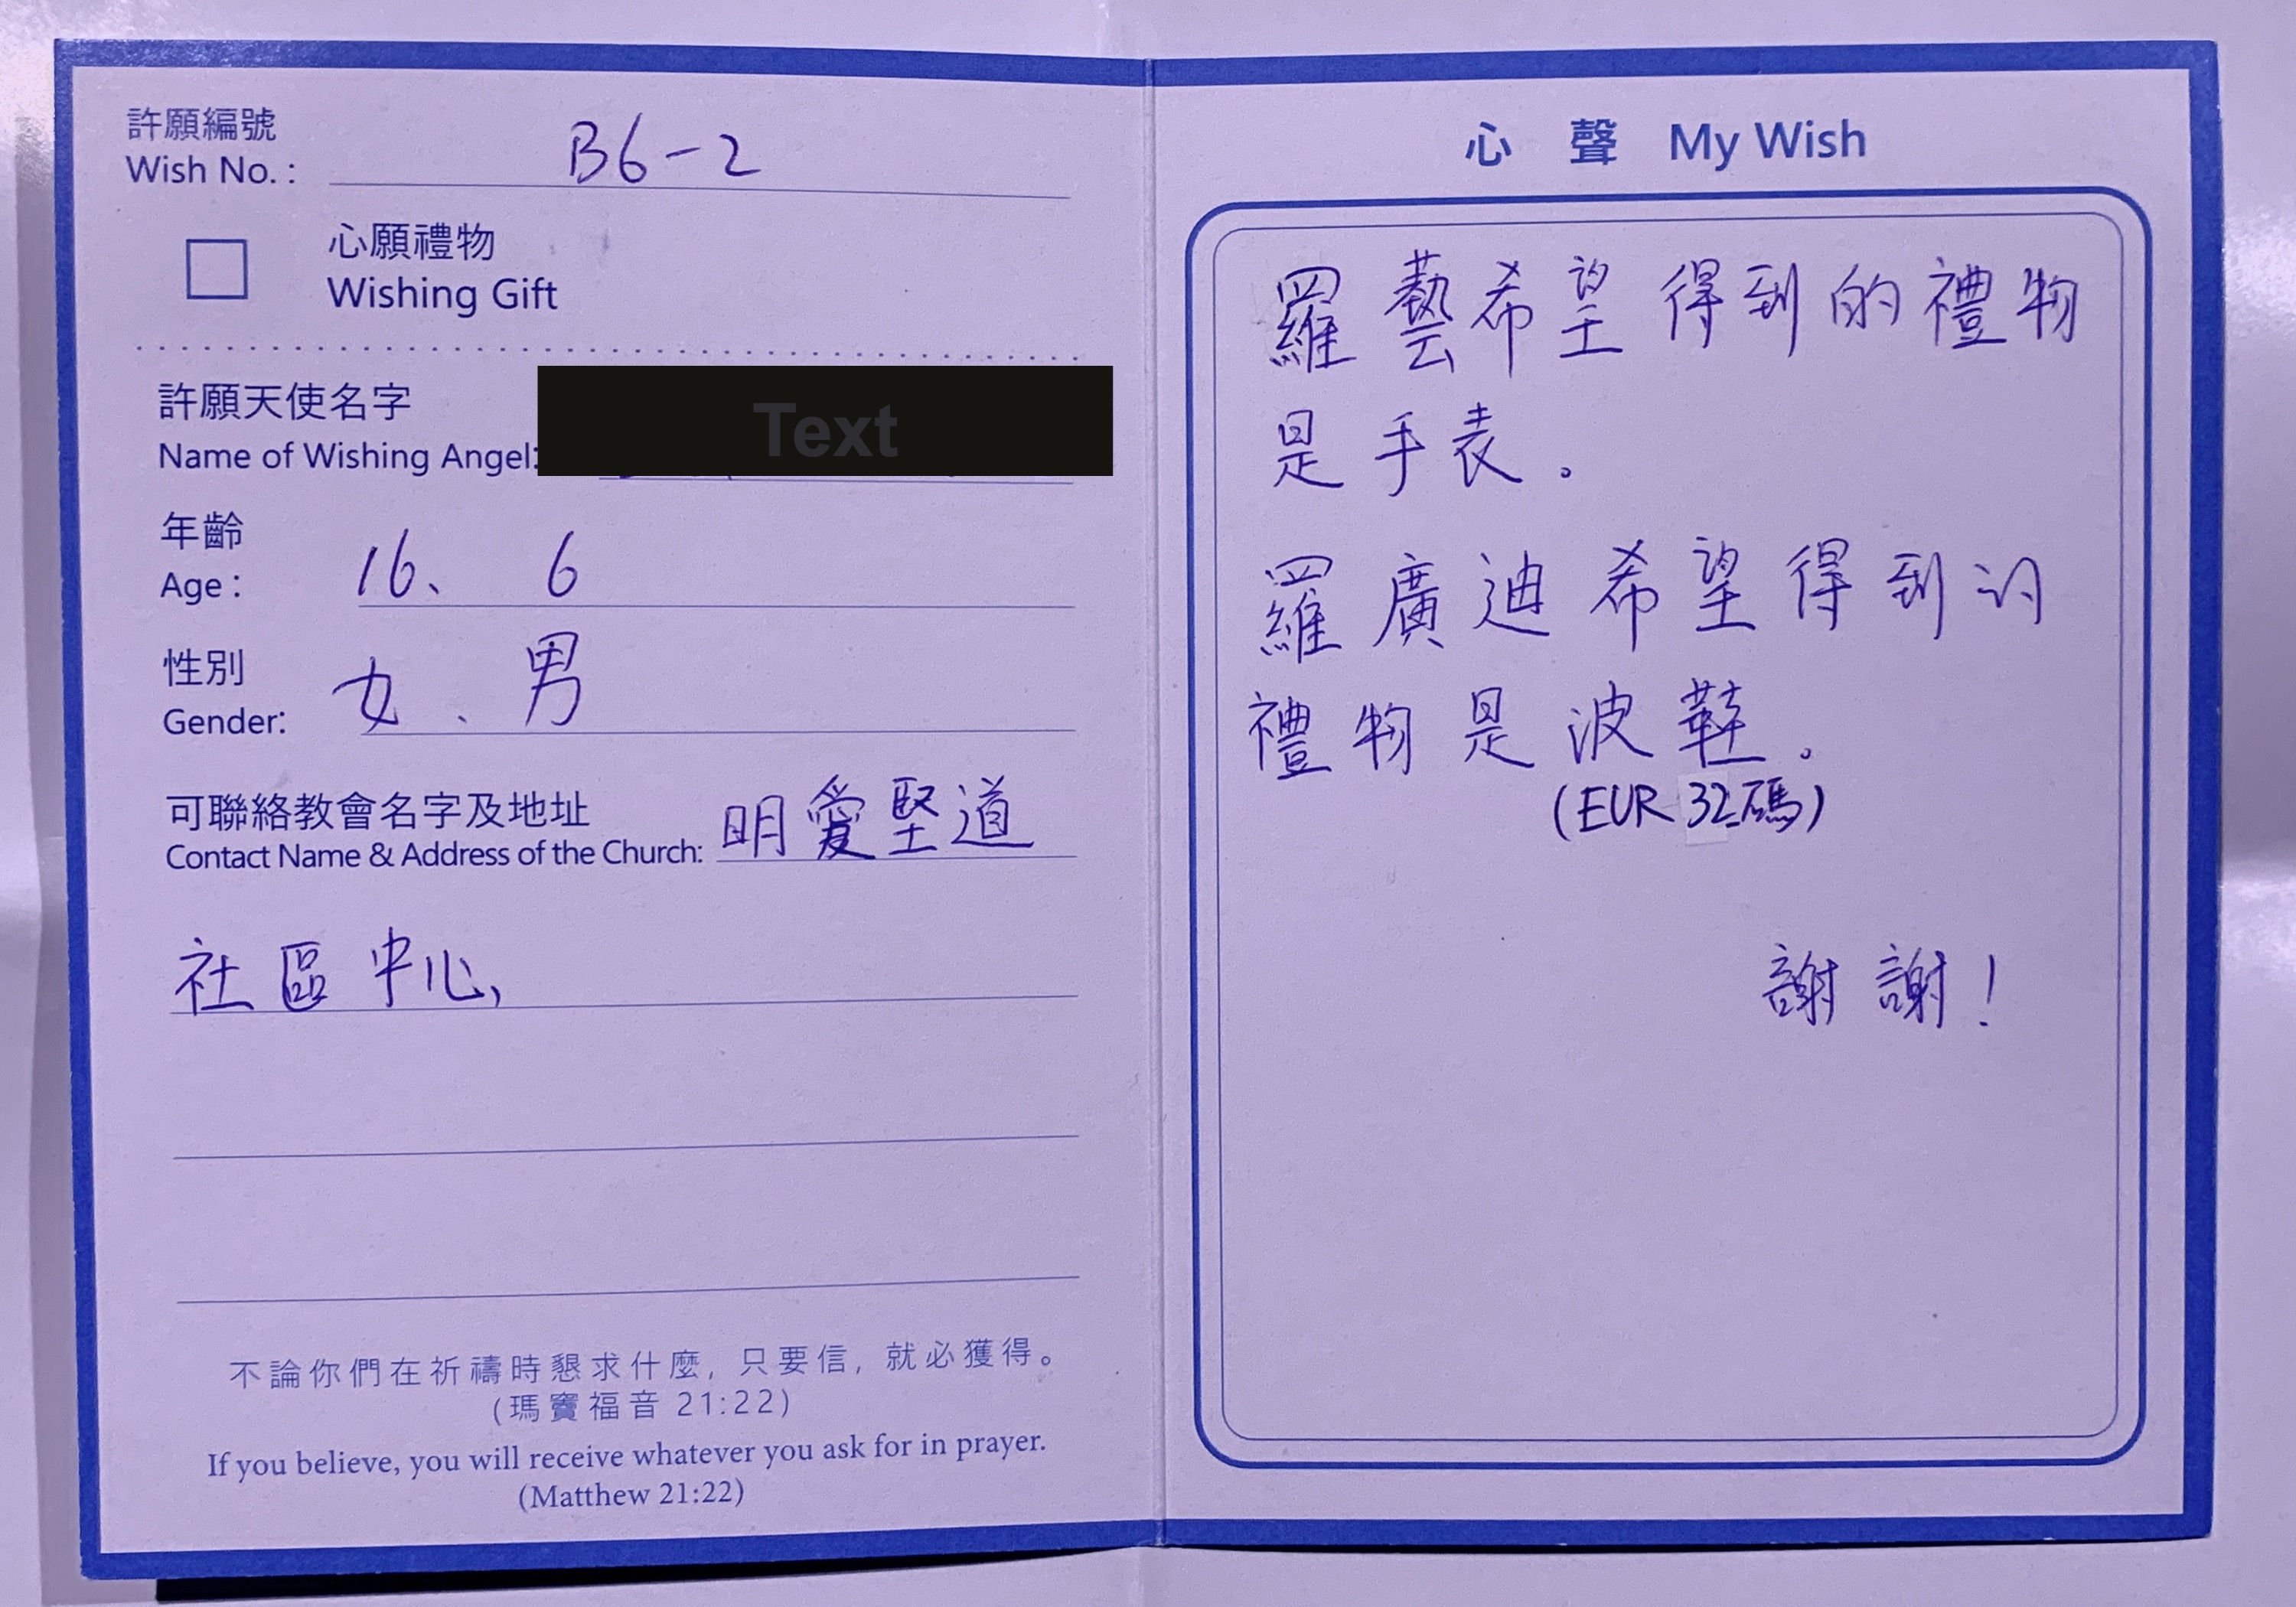 許願編號
Wish No. : B6-2
心願禮物
Wishing Gift
許願天使名字
Name of Wishing Angel:
Text
年齡
Age : 16、 6
性別
Gender: 女、男
可聯絡教會名字及地址
Contact Name & Address of the Church: 明愛堅道
社區中心,
不論你們在祈禱時懇求什麼, 只要信, 就必獲得。
(瑪竇福音 21:22)
If you believe, you will receive whatever you ask for in prayer.
(Matthew 21:22)
心聲 My Wish
羅藝希望得到的禮物
是手表。
羅廣迪希望得到的
禮物是波鞋。
(EUR 32碼)
謝謝!